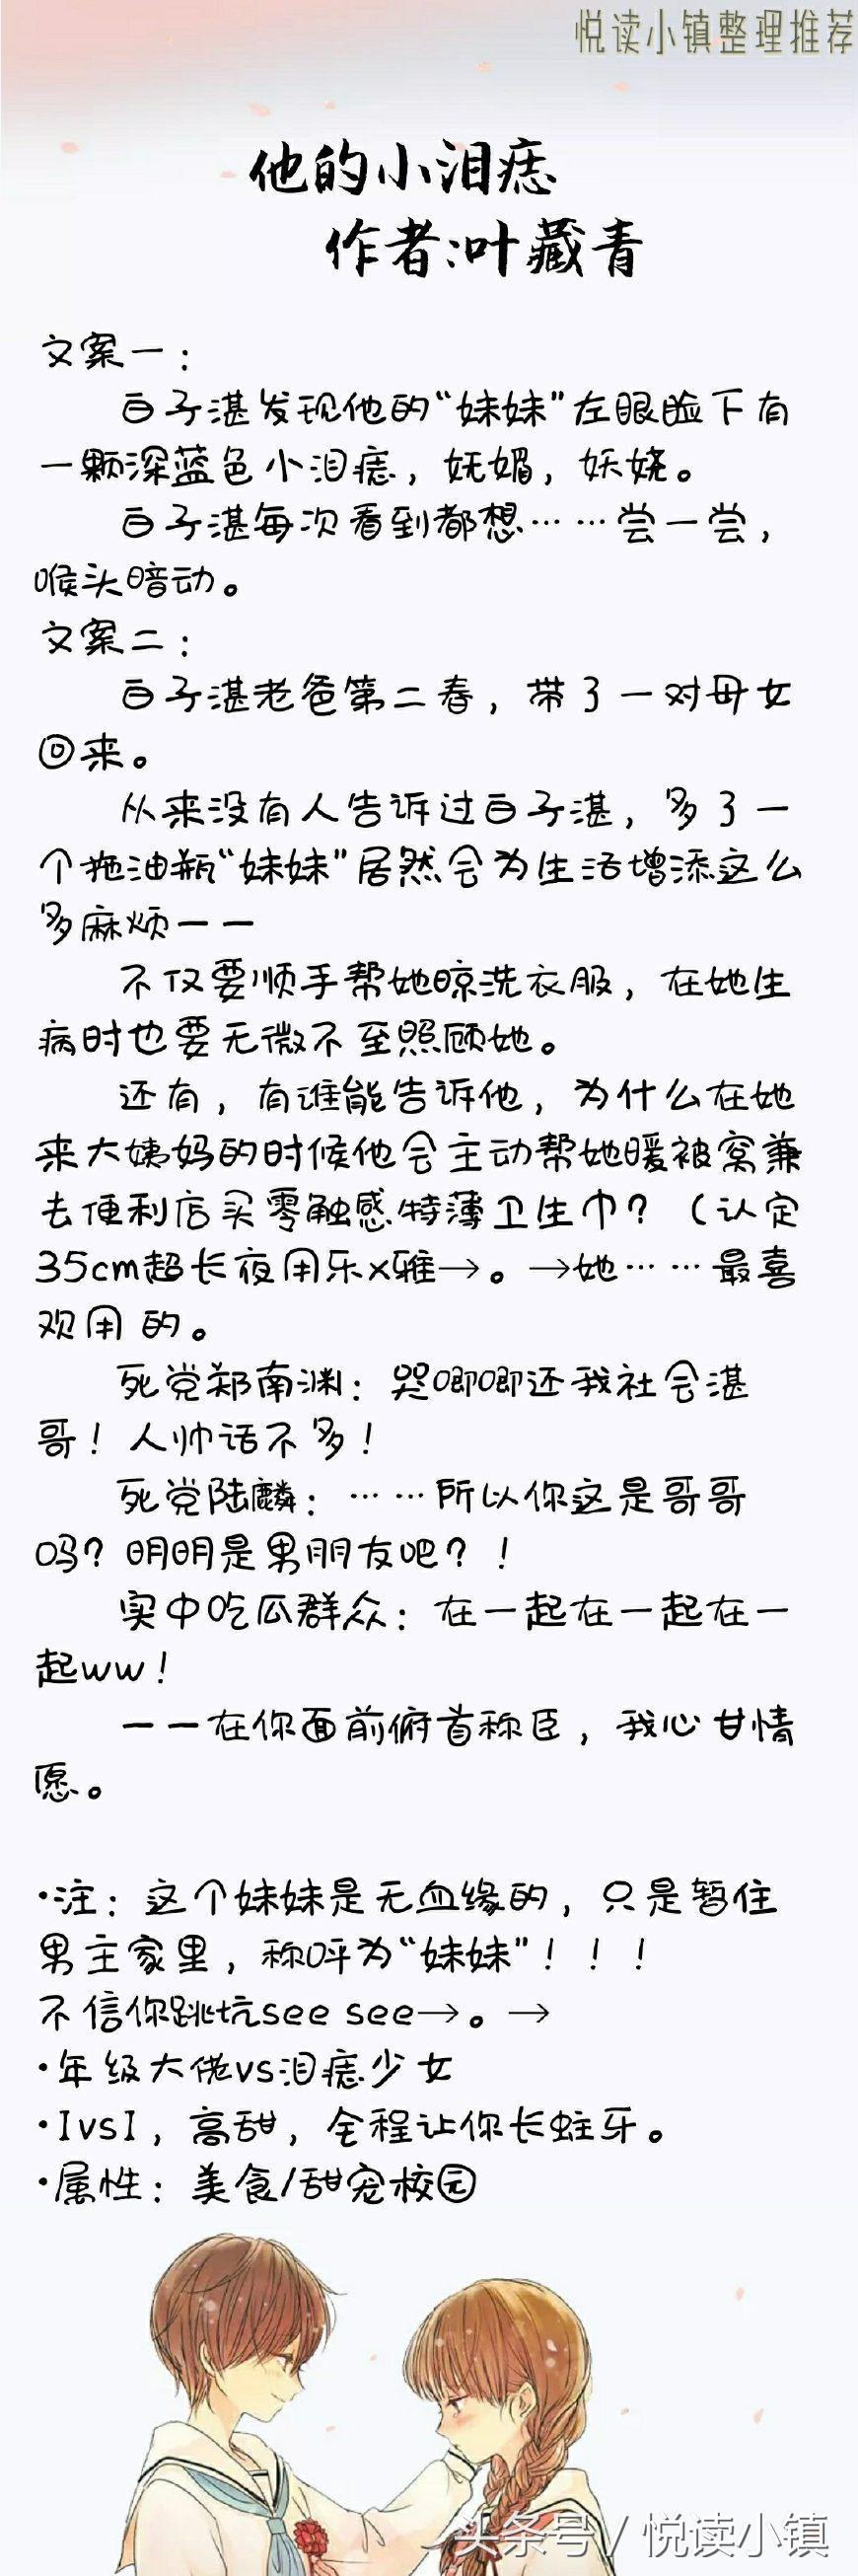 悦读小镇整理推荐
他的小泪痣
作者:叶藏青
文案一：
白子湛发现他的“妹妹”左眼睑下有
一颗深蓝色小泪痣，妩媚，妖娆。
白子湛每次看到都想……尝一尝，
喉头暗动。
文案二：
白子湛老爸第二春，带了一对母女
回来。
从来没有人告诉过白子湛，多了一
个拖油瓶“妹妹”居然会为生活增添这么
多麻烦——
不仅要顺手帮她晾洗衣服，在她生
病时也要无微不至照顾她。
还有，有谁能告诉他，为什么在她
来大姨妈的时候他会主动帮她暖被窝兼
去便利店买零触感特薄卫生巾？（认定
35cm超长夜用乐x雅→。→她……最喜
欢用的。
死党郑南渊：哭唧唧还我社会湛
哥！人帅话不多！
死党陆麟：……所以你这是哥哥
吗？明明是男朋友吧？！
实中吃瓜群众：在一起在一起在一
起ww！
——在你面前俯首称臣，我心甘情
愿。
•注：这个妹妹是无血缘的，只是暂住
男主家里，称呼为“妹妹”！！！
不信你跳坑see see→。→
•年级大佬vs泪痣少女
•1vs1，高甜，全程让你长蛀牙。
•属性：美食/甜宠校园
头条号 / 悦读小镇